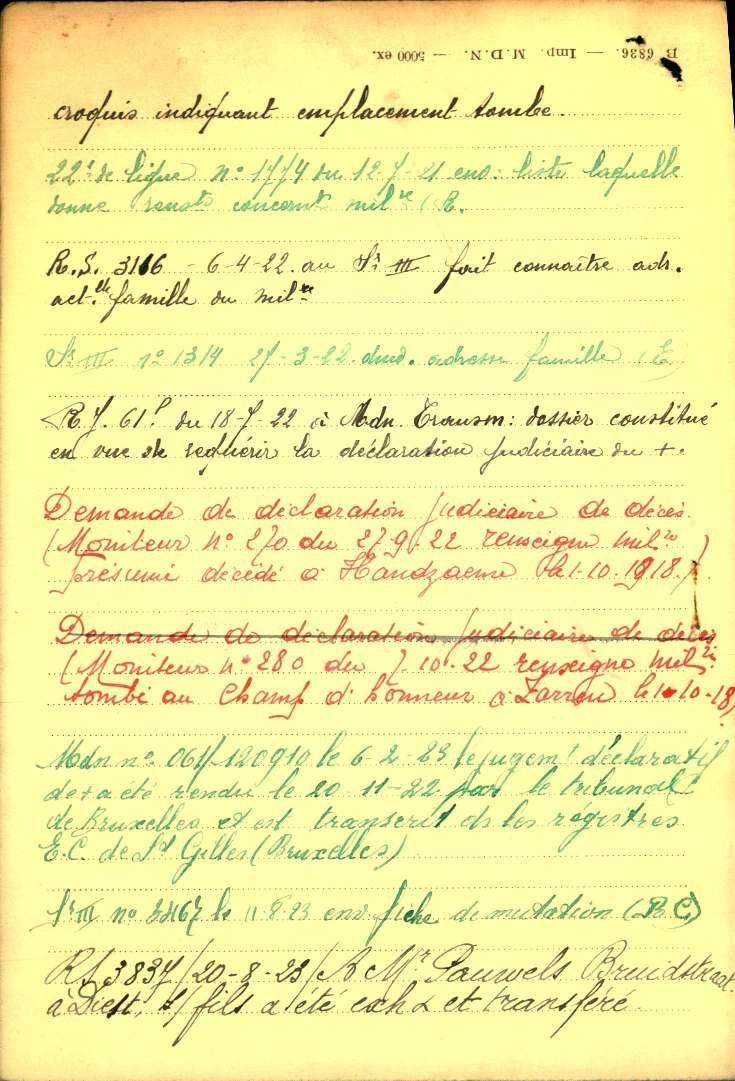 B 6836. — Imp. M.D.N. — 5000 ex.
croquis indiquant emplacement tombe.
22e de ligne n° 1774 du 12-7-21 env: liste laquelle
donne rensts concernt milre (R.
R.S. 3166 - 6-4-22. au Sr III fait connaître adr.
act.lle famille du milre
Sr III n° 1314 27-3-22 dmd. adresse famille (E)
R.J. 61P. du 18-7-22 à Mdn Transm: dossier constitué
en vue de requérir la déclaration judiciaire du +.
Demande de déclaration judiciaire de décès
(Moniteur n° 270 du 27.9.22 renseigne milre )
présumé décédé à Handzaeme le 1-10.1918.)
Demande de déclaration judiciaire de décès
(Moniteur n° 280 du 7.10.22 renseigne milre
tombé au champ d'honneur à Zarren le 1-10-18)
Mdn n° 061/120910 le 6-2-23 le jugemt déclaratif
de + a été rendu le 20-11-22 par le tribunal
de Bruxelles et est transcrit ds les régistres
E.C. de St Gilles (Bruxelles)
Sr III n° le 11-8-23 env. fiche de mutation (R C)
RS 3837/20-8-23/A Mr Pauwels Bruidstraat
à Diest, s/ fils a été exh et transféré.